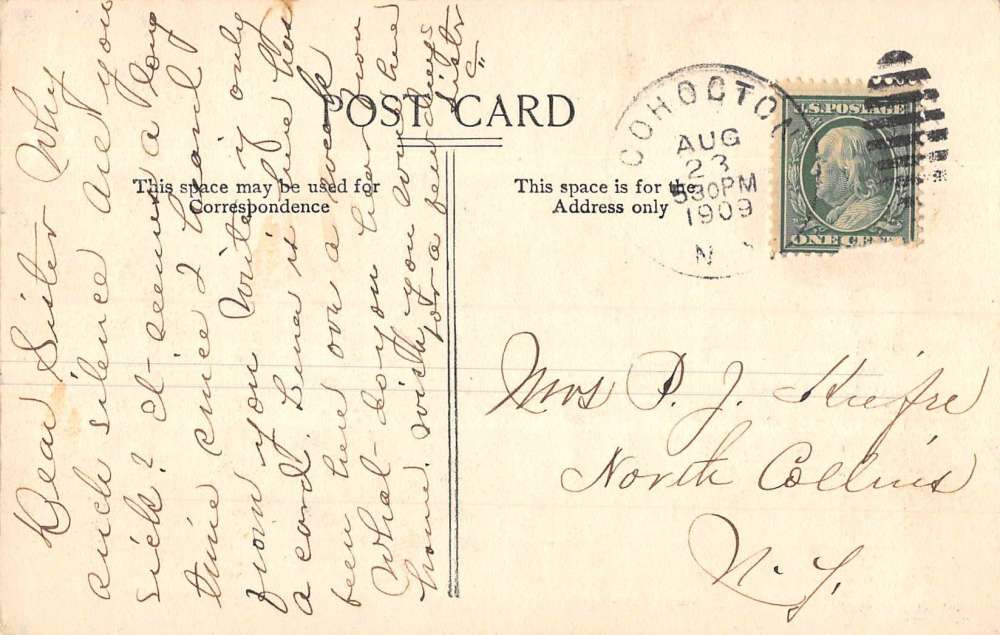 POST CARD
This space may be used for
Correspondence
This space is for the
Address only
COHOCTON
AUG
23
530PM
1909
N
U.S. POSTAGE
ONE CENT
Dear Sister Why
such silence are you
sick? it seems a long
time since I heard
from you Write if only
a card. Luna is here has
been here over a week
What do you hear from
home. wish you were here
for a few days
Sister
Mrs P. J.
North Collins
N. Y.